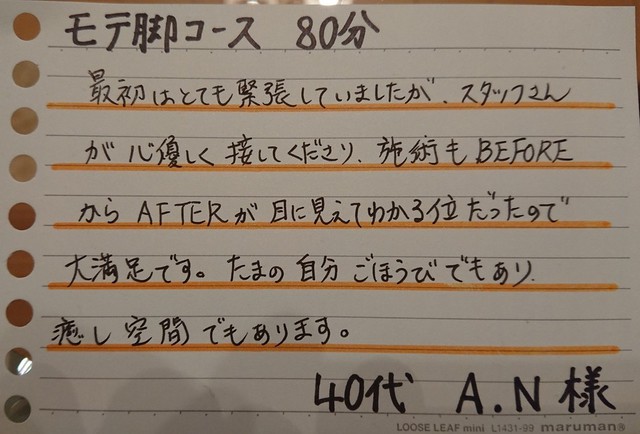 モテ脚コース 80分
最初はとても緊張していましたが、スタッフさん
が心優しく接してくださり、施術もBEFORE
からAFTERが目に見えてわかる位だったので
大満足です。たまの自分ごほうびでもあり、
癒し空間でもあります。
40代 A.N様
LOOSE LEAF mini L1431-99 maruman®